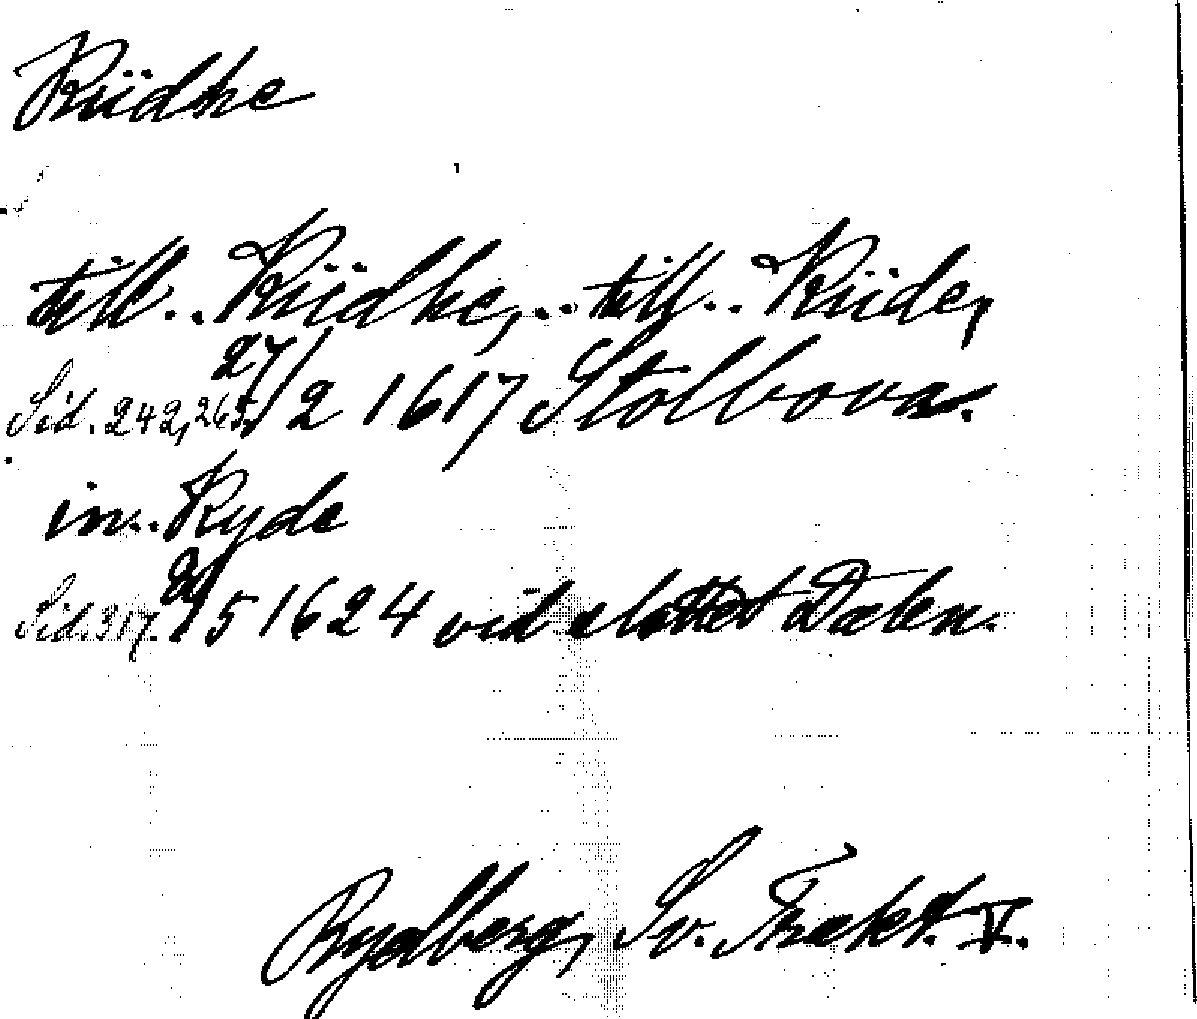 Rüdhe
till.. Rüdhe,.. till.. Rüde,
Sid. 242, 263. 27/2 1617 Stolbova.
in.. Ryde
Sid. 317. /5 1624 vid slottet Dalen.
Rydberg, Sv. Trakt. V.